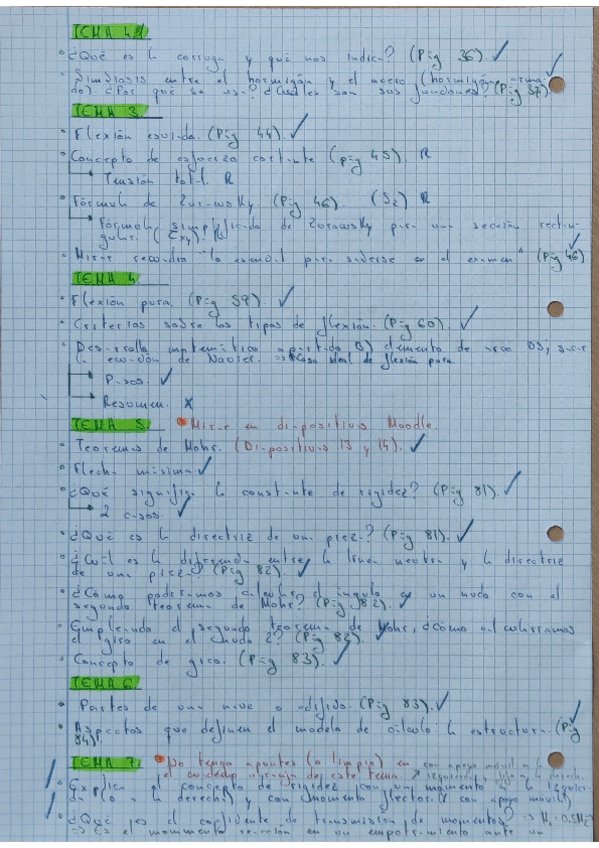 TEMA
• ¿Qué es la corruga y qué nos indica? (Pág 36). ✓
• Simbiosis entre el hormigón y el acero (hormigón arma-
do). ¿Por qué se usa? ¿Cuáles son sus funciones? (Pág 37)
TEMA 3.
• Flexión esviada. (Pág 44). ✓
• Concepto de esfuerzo cortante (pág 45). R
→ Tensión total. R
• Fórmula de Zurawsky. (Pág 46). (Sz) R
→ Fórmula simplificada de Zurawsky para una sección rectan-
gular. (τxy).
• Mirar recuadro "lo esencial para saberse en el examen" (Pág 46).
TEMA 4.
• Flexión pura. (Pág 59). ✓
• Criterios sobre los tipos de flexión. (Pág 60). ✓
• Desarrollo matemático apartado B) elemento de área DS; sacar
la ecuación de Navier. → Caso ideal de flexión pura.
→ Pasos. ✓
→ Resumen. x
TEMA 5. • Mirar en diapositivas Moodle.
• Teoremas de Mohr. (Diapositivas 13 y 14). ✓
• Flecha máxima ✓
• ¿Qué significa la constante de rigidez? (Pág 81). ✓
→ 2 casos. ✓
• ¿Qué es la directriz de una pieza? (Pág 81). ✓
• ¿Cuál es la diferencia entre la línea neutra y la directriz
de una pieza? (Pág 82). ✓
• ¿Cómo podríamos calcular el ángulo en un nudo con el
segundo teorema de Mohr? (Pág 82). ✓
• Empleando el segundo teorema de Mohr, ¿cómo calcularíamos
el giro en el nudo 2? (Pág 82). ✓
• Concepto de giro. (Pág 83). ✓
TEMA 6.
• Partes de una nave o edificio. (Pág 83). ✓
• Aspectos que definen el modelo de cálculo: la estructura. (Pág
84).
TEMA 7. • No tengo apuntes (a limpio) en
el cuaderno naranja de este tema.
con apoyo móvil a la
izquierda, fijo a la derecha
• Explica el concepto de rigidez con un momento a la izquier-
da (o a la derecha) y con momento flector (y con apoyo móvil)
• ¿Qué es el coeficiente de transmisión de momentos? → M1 = 0.5M2
→ Es el momento reacción en un empotramiento ante un